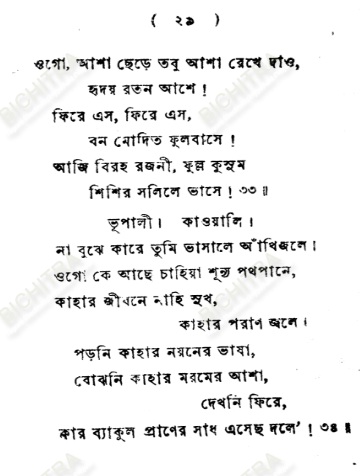 ( ২৯ )
ওগো, আশা ছেড়ে তবু আশা রেখে দাও,
হৃদয় রতন আশে !
ফিরে এস, ফিরে এস,
বন মোদিত ফুলবাসে !
আজি বিরহ রজনী, ফুল্ল কুসুম
শিশির সলিলে ভাসে ! ৩৩ ॥
ভূপালী। কাওয়ালি।
না বুঝে কারে তুমি ভাসালে আঁখিজলে।
ওগো কে আছে চাহিয়া শূন্য পথপানে,
কাহার জীবনে নাহি সুখ,
কাহার পরাণ জ্বলে।
পড়নি কাহার নয়নের ভাষা,
বোঝনি কাহার মরমের আশা,
দেখনি ফিরে,
কার ব্যাকুল প্রাণের সাধ এসেছ দলে' ! ৩৪ ॥
BICHITRA